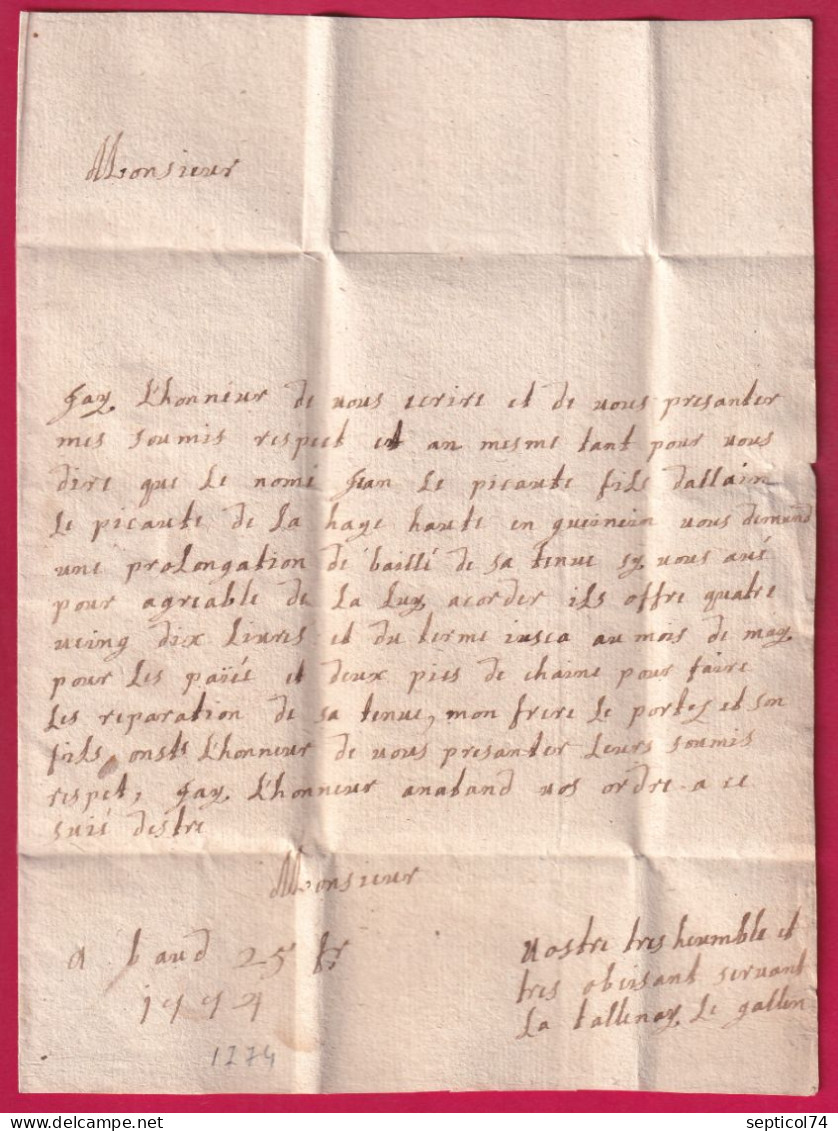 Monsieur
Jay L'honneur de vous ecrire et de vous presanter
mes soumis respect et an mesme tant pour vous
dire que Le nomé Jean Le picaute fils dallain
Le picaute de La haye haute en guernein vous demand
une proLongation de baillé de sa tenue sy vous avé
pour agreable de La Luy acorder ils offre quatre
veing dix Livres et du terme iusca au mois de may
pour Les païé et deux pies de chaine pour faire
Les reparation de sa tenue, mon frere Le portez et son
fils onste L'honneur de vous presanter Leurs soumis
respet, Jay L'honneur anatand vos ordre a ce
suié destre
Monsieur
a baud 25 fr
1774
1774
vostre tres heumble et
tres obeisant servant
La tallenay Le gallen
www.delcampe.net
septicol74